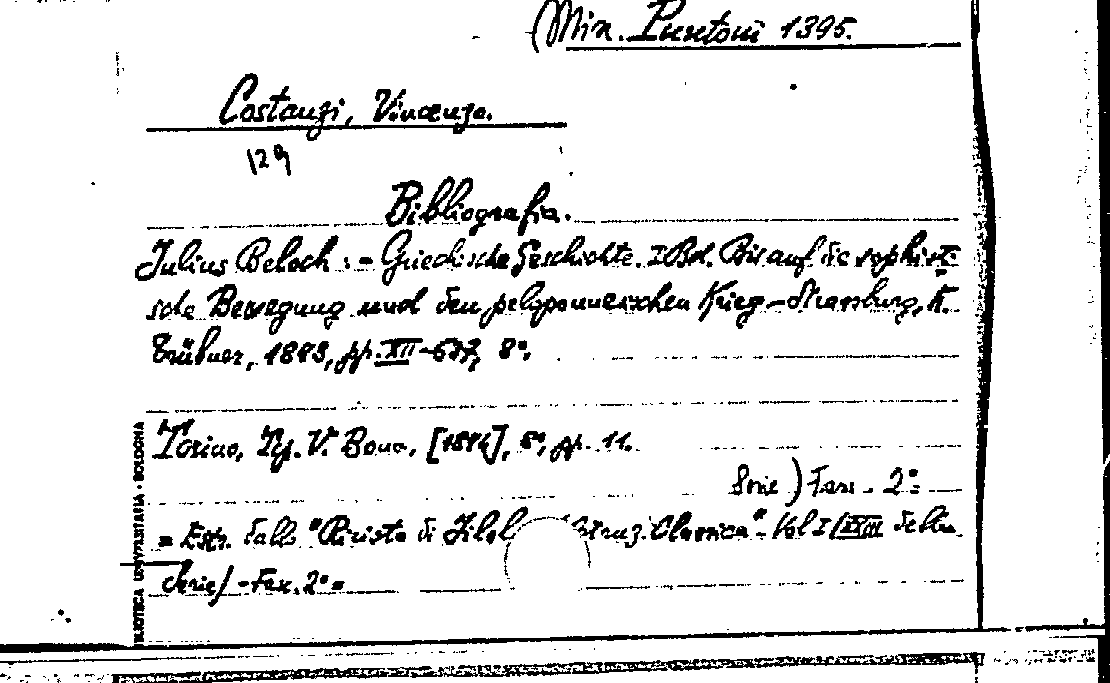 Min. Puntoni 1395.
Costanzi, Vincenzo.
129
Bibliografia.
Julius Beloch : - Griechische Geschichte. I Bd. Bis auf die sophisti-
sche Bewegung und den peloponnesischen Krieg - Strassburg, K.
Trübner, 1893, pp. XII-637, 8°.
Torino, Tip. V. Bona, [1894], 8°, pp. 11.
Serie) Fasc. 2°=
= Estr. dalla "Rivista di Filol Istruz. Classica" - Vol I (XXIII della
Serie) - Fasc. 2° =
BLIOTECA UNIVERSITARIA - BOLOGNA